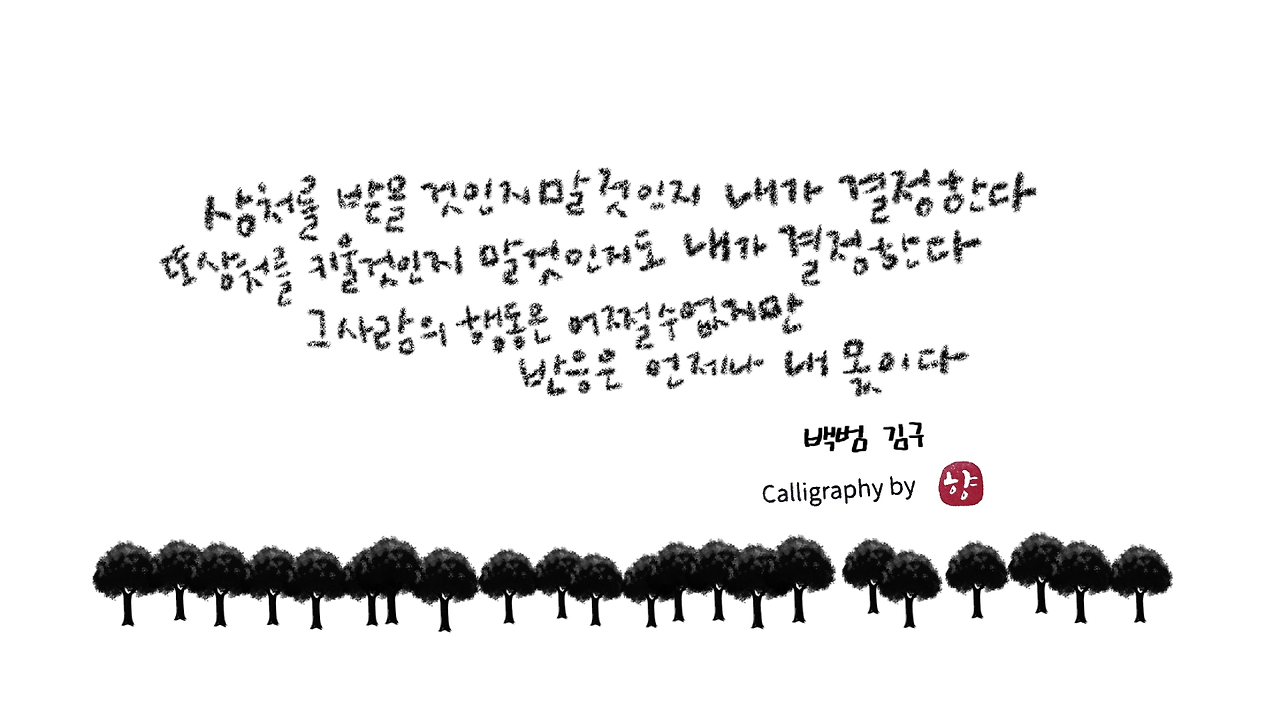 상처를 받을 것인지 말 것인지 내가 결정한다
또 상처를 키울 것인지 말 것인지도 내가 결정한다
그 사람의 행동은 어쩔 수 없지만
반응은 언제나 내 몫이다
백범 김구
Calligraphy by 향